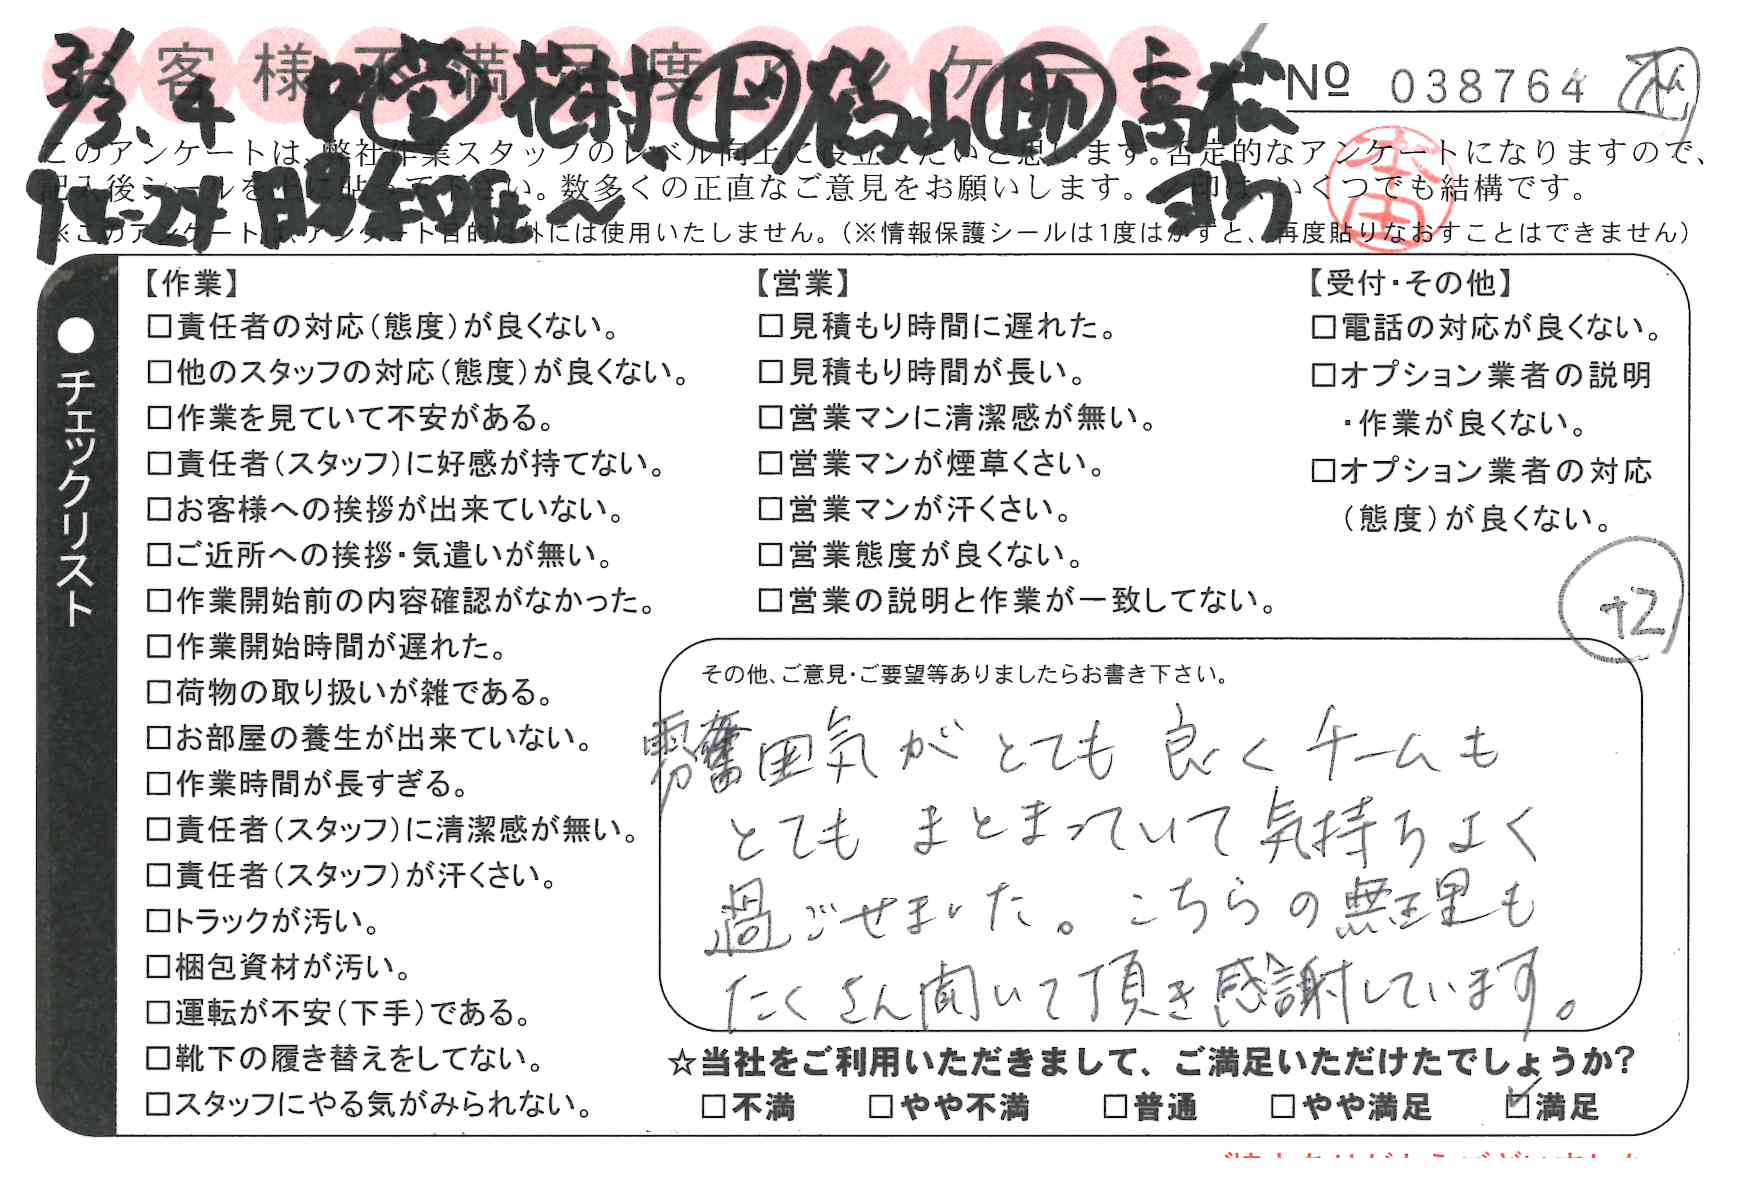 お客様不満足度アンケート
3/3、4 営 花村、下 鶴山 助 高松
Nº 038764 松
このアンケートは、弊社作業スタッフのレベル向上に役立てたいと思います。否定的なアンケートになりますので、
記入後シールを上に貼って下さい。数多くの正直なご意見をお願いします。✓印は、いくつでも結構です。
※このアンケートは、アンケート目的以外には使用いたしません。（※情報保護シールは1度はがすと、再度貼りなおすことはできません）
本田
●チェックリスト
【作業】
□責任者の対応（態度）が良くない。
□他のスタッフの対応（態度）が良くない。
□作業を見ていて不安がある。
□責任者（スタッフ）に好感が持てない。
□お客様への挨拶が出来ていない。
□ご近所への挨拶・気遣いが無い。
□作業開始前の内容確認がなかった。
□作業開始時間が遅れた。
□荷物の取り扱いが雑である。
□お部屋の養生が出来ていない。
□作業時間が長すぎる。
□責任者（スタッフ）に清潔感が無い。
□責任者（スタッフ）が汗くさい。
□トラックが汚い。
□梱包資材が汚い。
□運転が不安（下手）である。
□靴下の履き替えをしてない。
□スタッフにやる気がみられない。
【営業】
□見積もり時間に遅れた。
□見積もり時間が長い。
□営業マンに清潔感が無い。
□営業マンが煙草くさい。
□営業マンが汗くさい。
□営業態度が良くない。
□営業の説明と作業が一致してない。
【受付・その他】
□電話の対応が良くない。
□オプション業者の説明
・作業が良くない。
□オプション業者の対応
（態度）が良くない。
+2
その他、ご意見・ご要望等ありましたらお書き下さい。
雰囲気がとても良くチームも
とてもまとまっていて気持ちよく
過ごせました。こちらの無理も
たくさん聞いて頂き感謝しています。
☆当社をご利用いただきまして、ご満足いただけたでしょうか？
□不満 □やや不満 □普通 □やや満足 ☑満足